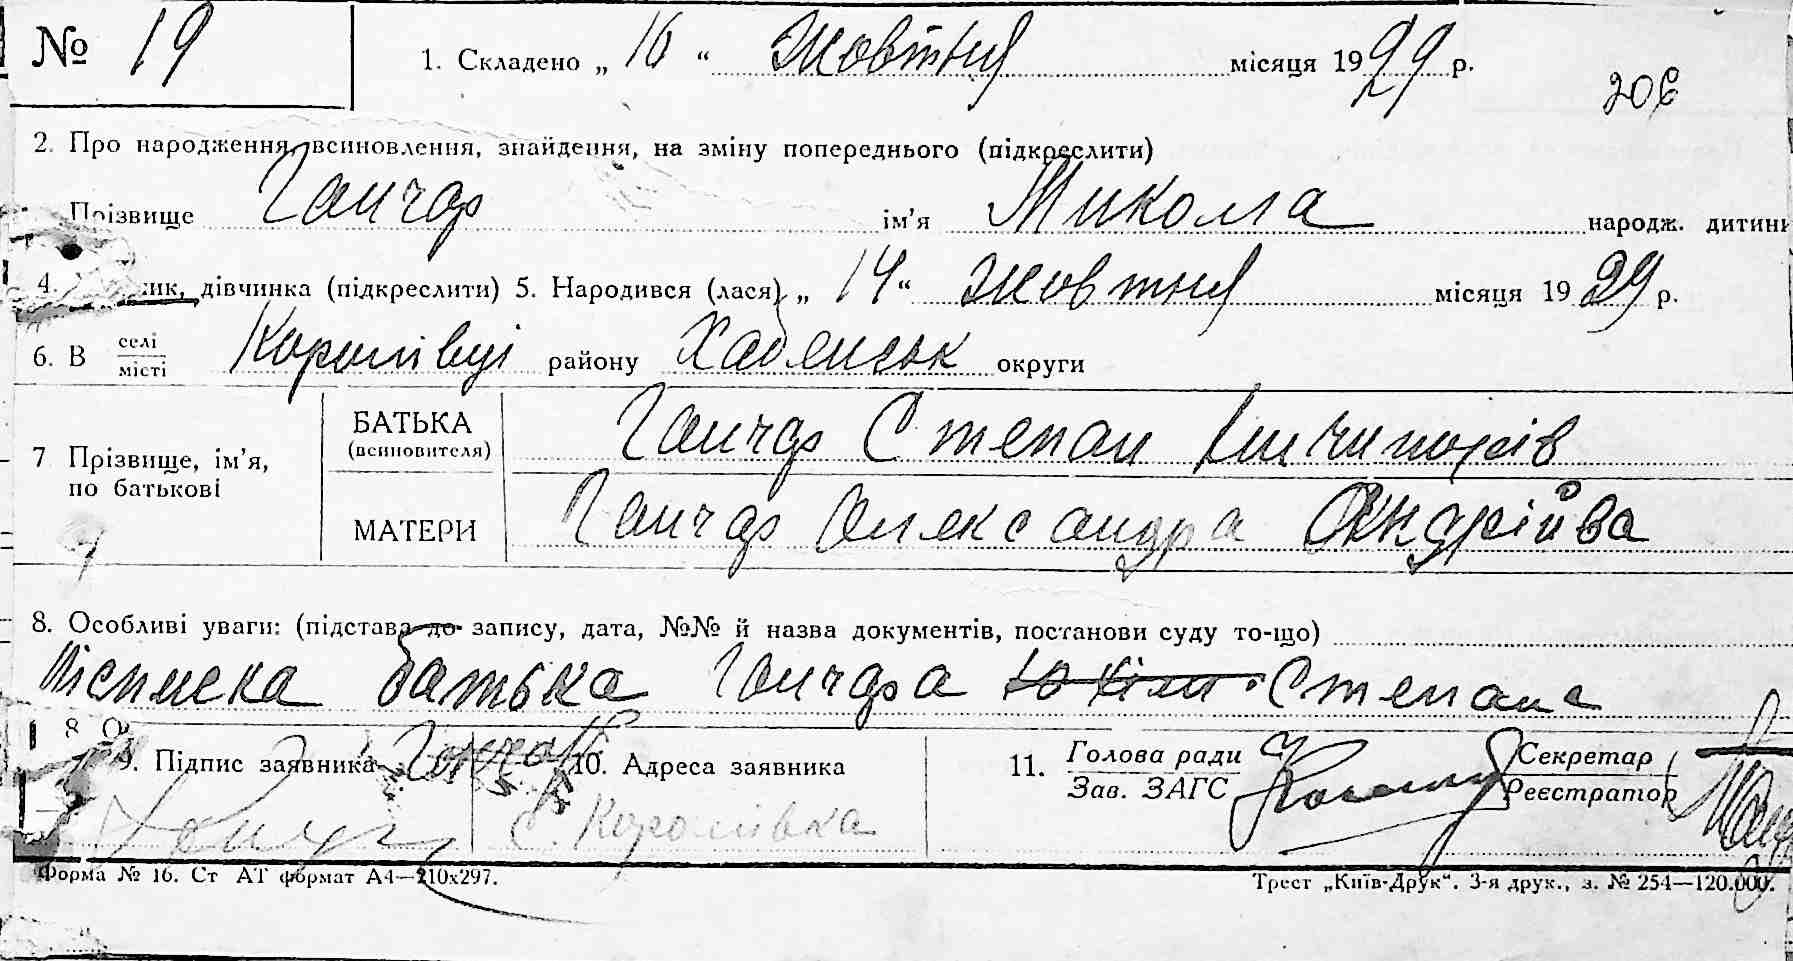 № 19
1. Складено „ 16 “ жовтня місяця 1929 р.
206
2. Про народження, всиновлення, знайдення, на зміну попереднього (підкреслити)
Прізвище Гончар ім’я Микола народж. дитини
4. дівчинка (підкреслити) 5. Народився (лася) „ 14 “ жовтня місяця 1929 р.
6. В селі місті Королівці району Хабенськ округи
7 Прізвище, ім’я, по батькові
БАТЬКА (всиновителя) Гончар Степан Ничипорів
МАТЕРИ Гончар Олександра Андрійва
8. Особливі уваги: (підстава до запису, дата, №№ й назва документів, постанови суду то-що)
батька Гончара Степана
9. Підпис заявника Гончар 10. Адреса заявника 11. Голова ради Зав. ЗАГС Секретар Реєстратор
с. Королівка
Форма № 16. Ст АТ формат А4—210х297. Трест „Київ-Друк“. 3-я друк., з. № 254—120.000.